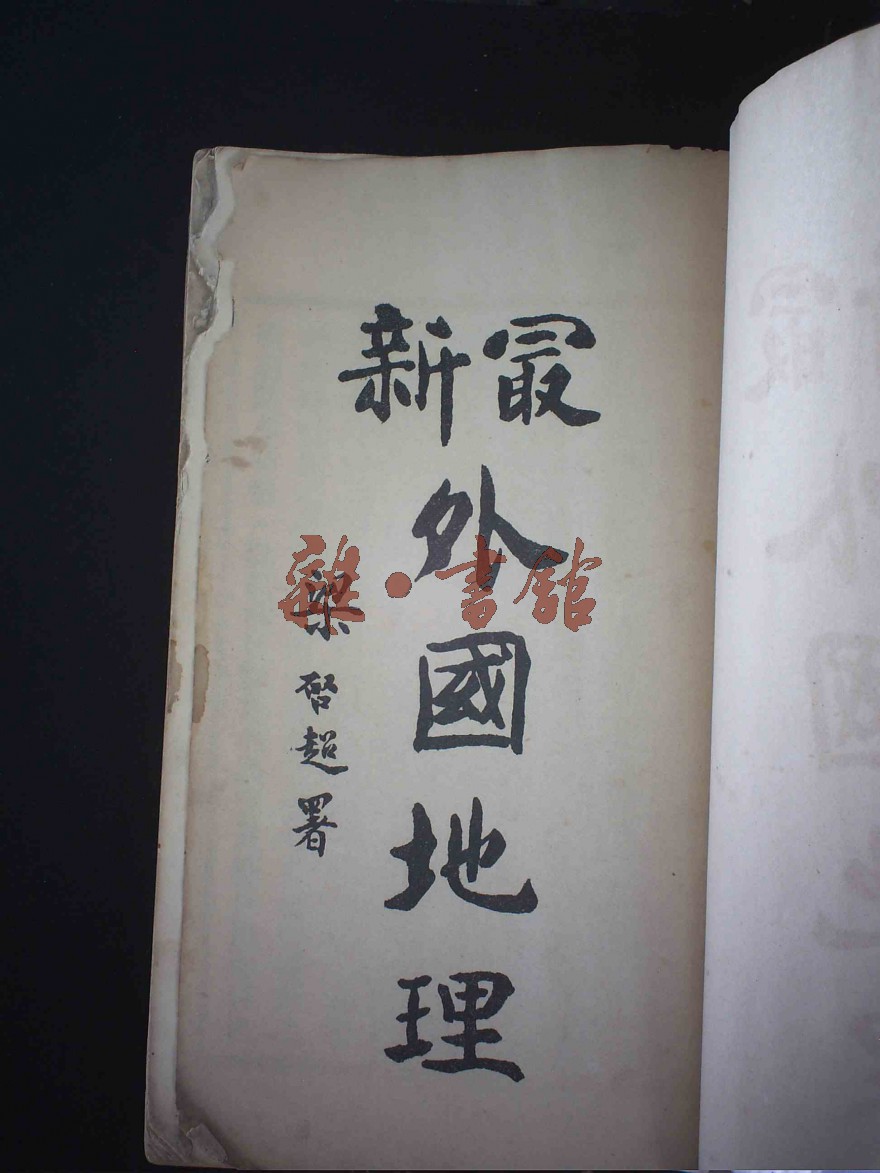 最新
外國地理
梁啓超署
雜·書館